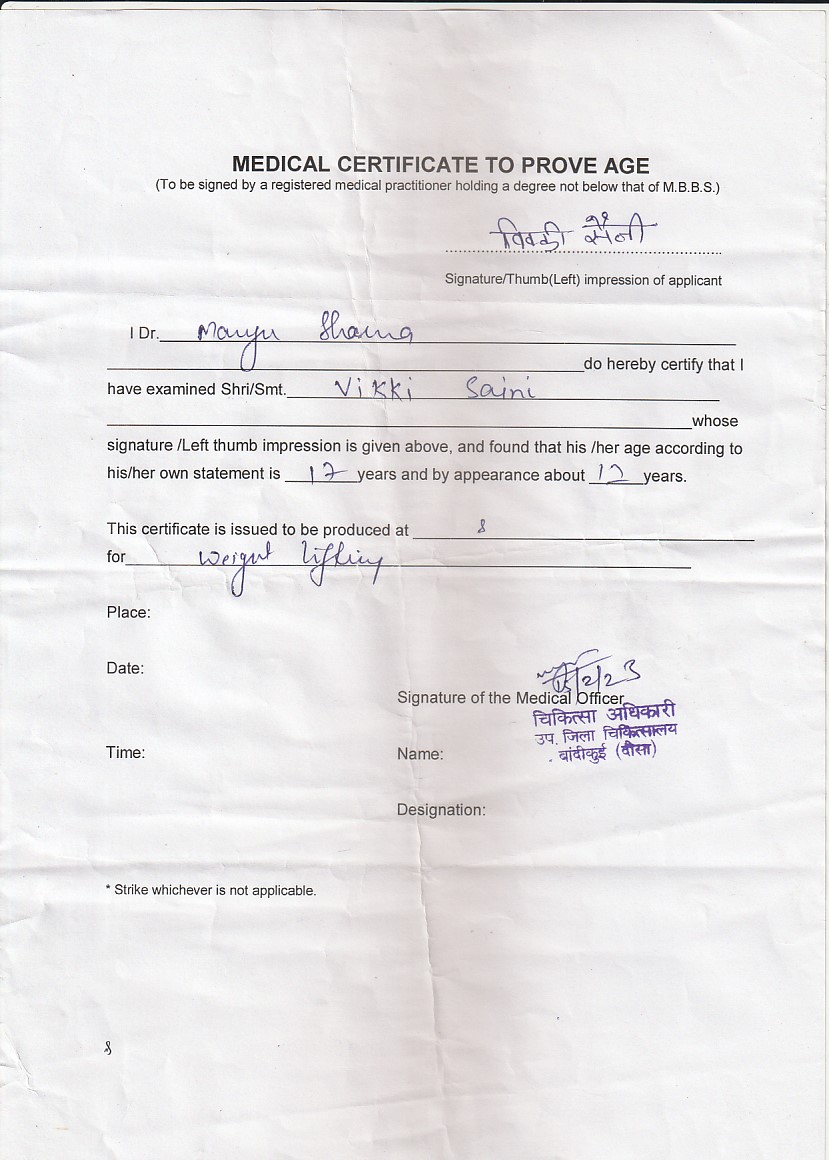 MEDICAL CERTIFICATE TO PROVE AGE
(To be signed by a registered medical practitioner holding a degree not below that of M.B.B.S.)
विक्की सैनी
Signature/Thumb(Left) impression of applicant
I Dr. Manju Sharma
do hereby certify that I
have examined Shri/Smt. Vikki Saini
whose
signature /Left thumb impression is given above, and found that his /her age according to
his/her own statement is 17 years and by appearance about years.
This certificate is issued to be produced at
for Weight lifting
Place:
Date:
/2/23
Signature of the Medical Officer
चिकित्सा अधिकारी
उप. जिला चिकित्सालय
Time:
Name:
बांदीकुई (दौसा)
Designation:
* Strike whichever is not applicable.